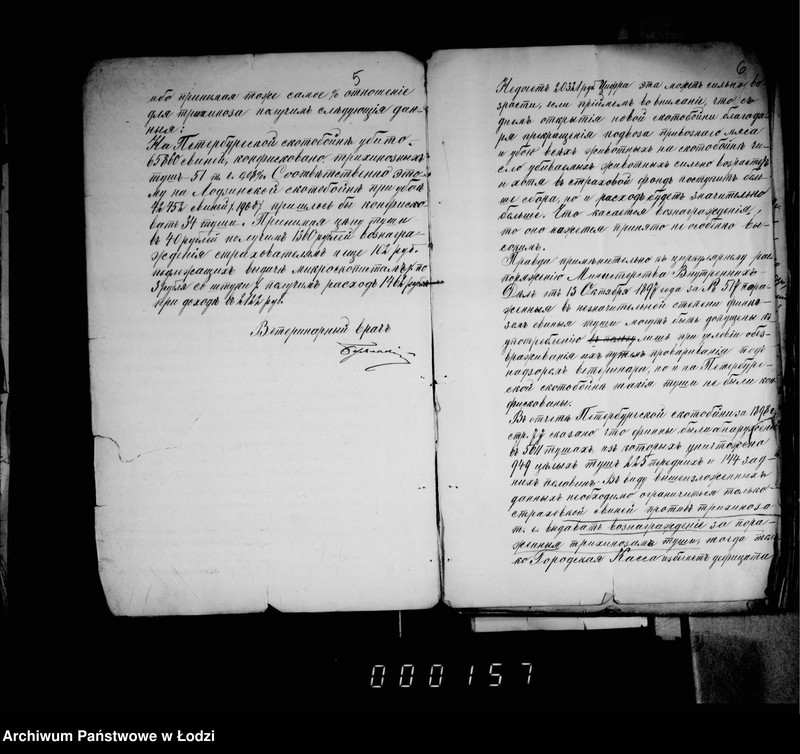 5
ибо принимая тоже самое % отношеніе
для трихиноза получим слѣдующія дан-
ныя:
На Петербургской скотобойнѣ убито
65860 свиней, конфисковано трихинозныхъ
туш 51 т. е. 0.08%. Соотвѣтственно это-
му на Лодзинской скотобойнѣ при убоѣ
42452 свиней пришлось бы конфиско-
вать 34 туши. Принимая цѣну туши
въ 40 рублей получим 1360 рублей вознагра-
жденія страхователям и еще 102 руб.
подлежащихъ выдачѣ микроскопистам по
3 рубля со штуки, получим расход 1462 рубля
при доходѣ въ 2122 руб.
Ветеринарный врач
6
Недочет 20331 руб. Цифра эта может сильно во-
зрасти, если приймем во вниманіе, что съ
днем открытія новой скотобойни благода-
ря прекращенія подвоза привознаго мяса
и убою всѣх животных на скотобойнѣ чи-
сло убиваемых животных сильно возрастет
и хотя в страховой фонд поступит боль-
ше сбора, но и расход будет значительно
больше. Что касается вознагражденія,
то оно кажется принято не особенно вы-
соким.
Правда примѣнительно къ циркулярному рас-
поряженію Министерства Внутренних
Дѣл от 13 Октября 1897 года за № 517 пора-
женныя в незначительной степени финно-
зом свиныя туши могут быть допущены къ
употребленію лишь при условіи обез-
враживанія их путем провариванія под
надзором ветеринара, но и на Петербург-
ской скотобойнѣ такія туши не были кон-
фискованы.
Въ отчетѣ Петербургской скотобойни за 1898 г.
стр. 77 сказано что финны были обнаружены
въ 5611 тушах из которых уничтожено
949 цѣлых туш 225 передних и 144 зад-
них половин. Въ виду вышеизложенных
данных необходимо ограничиться только
страховкой свиней против трихиноза
т. е. выдавать вознагражденіе за пора-
женныя трихинозом туши, тогда толь-
ко Городская Касса избѣгнет дефицита
000157
Archiwum Państwowe w Łodzi